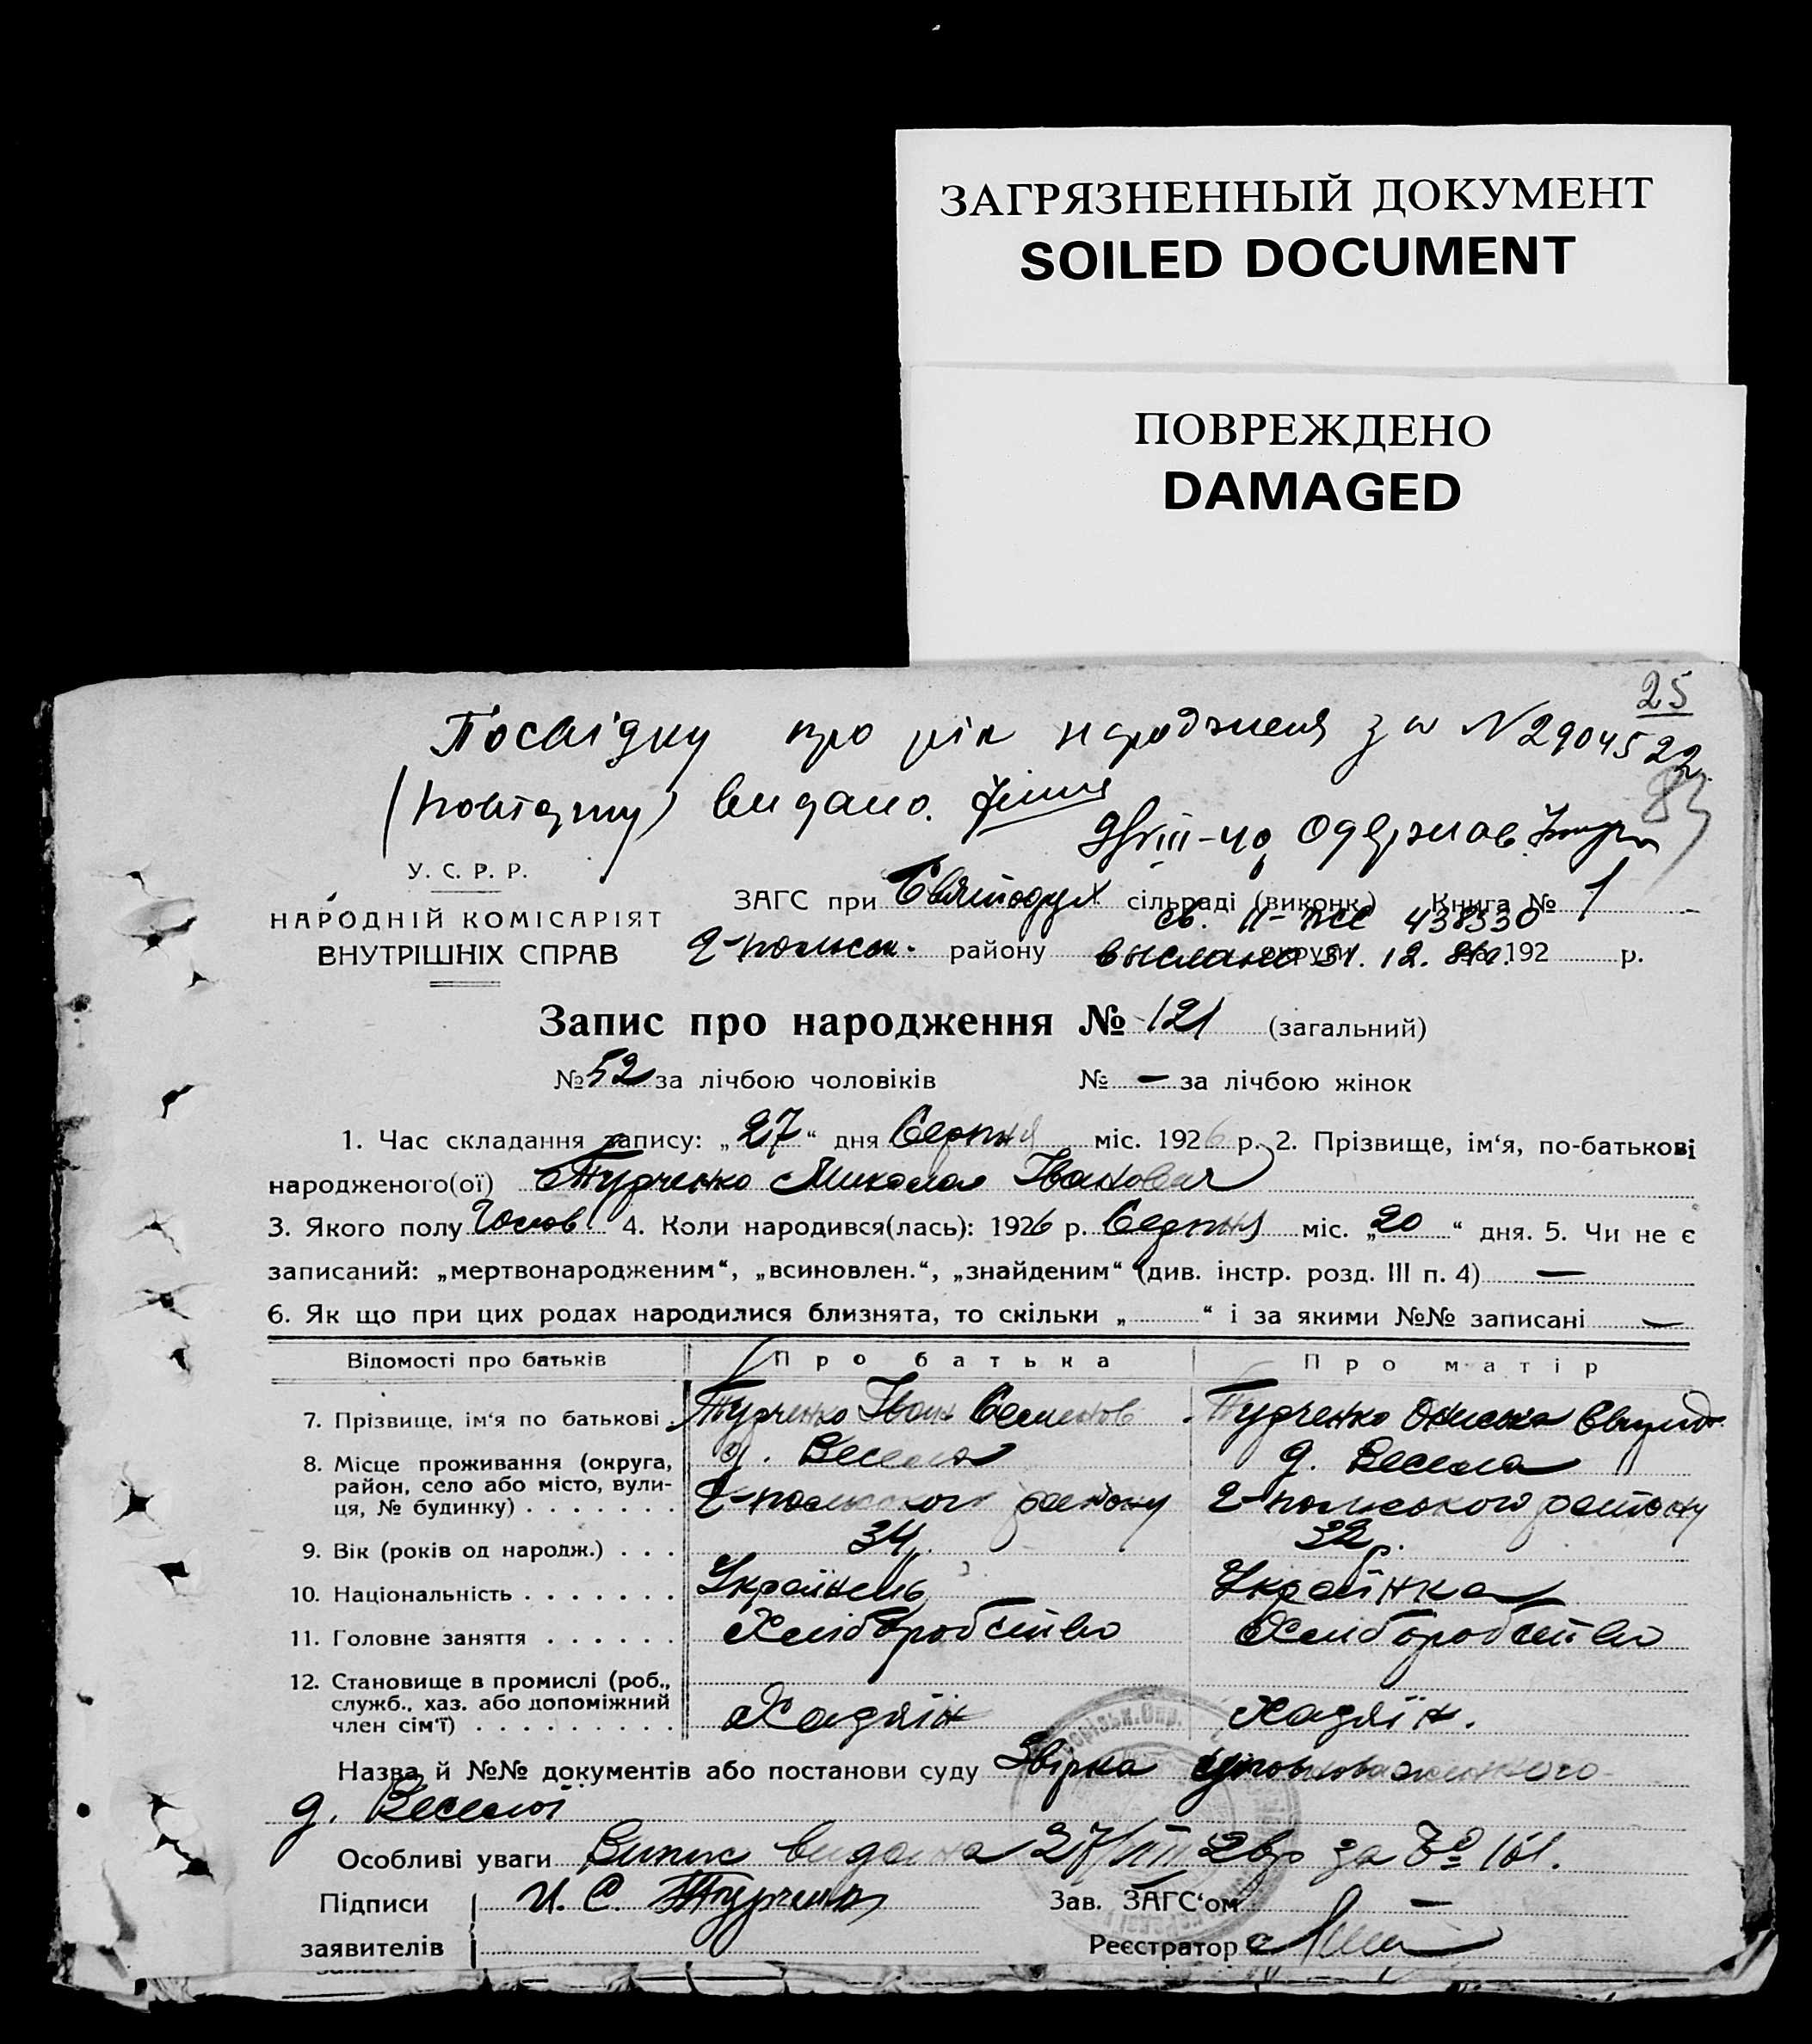 ЗАГРЯЗНЕННЫЙ ДОКУМЕНТ
SOILED DOCUMENT
ПОВРЕЖДЕНО
DAMAGED
25
Посвідку про рік народженя за N 2904522
(повідку) видано.
83
Одержав
У. С. Р. Р.
НАРОДНІЙ КОМІСАРІЯТ
ВНУТРІШНІХ СПРАВ
ЗАГС при Святодух сільраді (виконк.) Книга № 1
св. II-ЖС 438330
г-польськ. району округи на 192 р.
выслано 31. 12.
Запис про народження № 121 (загальний)
№ 52 за лічбою чоловіків № — за лічбою жінок
1. Час складання запису: „27“ дня Серпня міс. 1926 р. 2. Прізвище, ім‘я, по-батькові
народженого(ої) Турченко Микола Іванович
3. Якого полу Чолов. 4. Коли народився(лась): 1926 р. Серпня міс. „20“ дня. 5. Чи не є
записаний: „мертвонародженим“, „всиновлен.“, „знайденим“ (див. інстр. розд. III п. 4) —
6. Як що при цих родах народилися близнята, то скільки „ “ і за якими №№ записані —
Відомості про батьків Про батька Про матір
7. Прізвище, ім‘я по батькові Турченко Іван Семенов Турченко
8. Місце проживання (округа, район, село або місто, вули-ця, № будинку) д. Весела д. Весела
г-польського району г-польського району
9. Вік (років од народж.) 34 р. 32 р.
10. Національність Українець Українка
11. Головне заняття Хліборобство Хліборобство
12. Становище в промислі (роб., служб., хаз. або допоміжний член сім‘ї) Хазяїн Хазяїн.
Назва й №№ документів або постанови суду Звірка уповноваженого
д. Веселої
Особливі уваги Випис видана 27/VIII 26 р за № 161.
Підписи И. С. Турченко Зав. ЗАГС‘ом —
заявителів Реєстратор